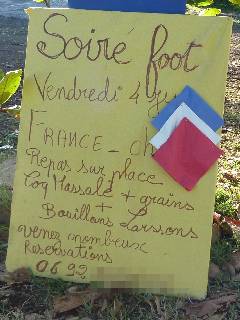 Soiré foot
Vendredi 4 Ju
FRANCE - ch
Repas sur place
Coq Massalé + grains
+
Bouillons Larssons
venez nombreux
Reservations
06 92